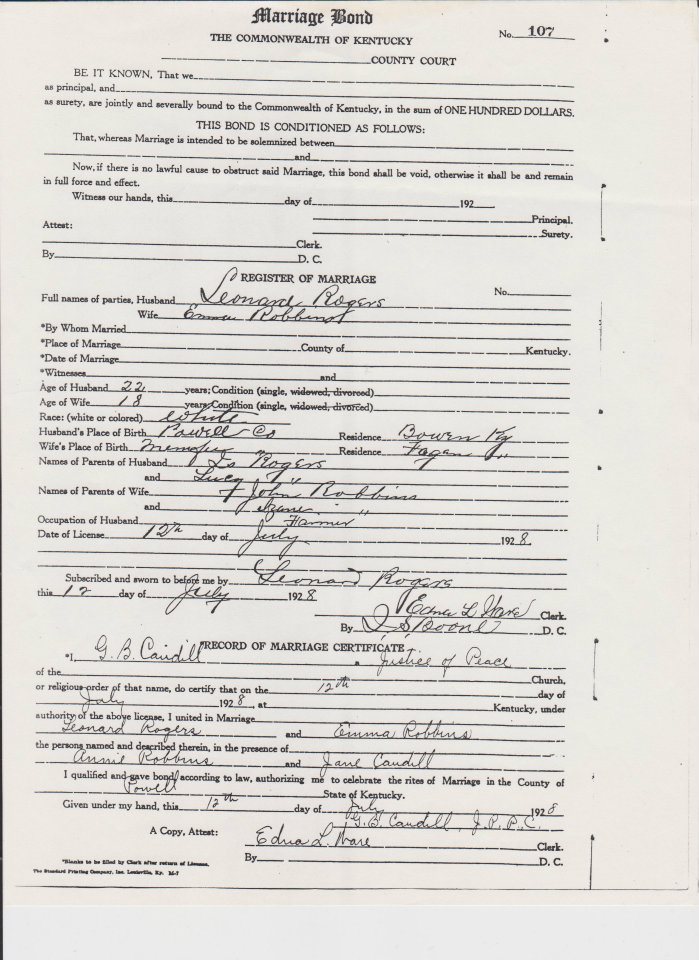 Marriage Bond
THE COMMONWEALTH OF KENTUCKY
No. 107
COUNTY COURT
BE IT KNOWN, That we
as principal, and
as surety, are jointly and severally bound to the Commonwealth of Kentucky, in the sum of ONE HUNDRED DOLLARS.
THIS BOND IS CONDITIONED AS FOLLOWS:
That, whereas Marriage is intended to be solemnized between
and
Now, if there is no lawful cause to obstruct said Marriage, this bond shall be void, otherwise it shall be and remain
in full force and effect.
Witness our hands, this day of 192
Principal.
Attest: Surety.
Clerk.
By D. C.
REGISTER OF MARRIAGE
Full names of parties, Husband Leonard Rogers No.
Wife Emma Robbins
*By Whom Married
*Place of Marriage County of Kentucky.
*Date of Marriage
*Witnesses and
Age of Husband 22 years; Condition (single, widowed, divorced)
Age of Wife 18 years; Condition (single, widowed, divorced)
Race: (white or colored) White
Husband's Place of Birth Powell Co Residence Bowen Ky
Wife's Place of Birth Menifee " Residence Fagan "
Names of Parents of Husband Rogers
and Lucy "
Names of Parents of Wife John Robbins
and "
Occupation of Husband Farmer
Date of License 12th day of July 1928
Subscribed and sworn to before me by Leonard Rogers
this 12 day of July 1928
Edna L Ware Clerk.
By Boone D. C.
RECORD OF MARRIAGE CERTIFICATE
*I, G. B. Caudill a Justice of Peace
of the Church,
or religious order of that name, do certify that on the 12th day of
July 1928, at Kentucky, under
authority of the above license, I united in Marriage
Leonard Rogers and Emma Robbins
the persons named and described therein, in the presence of
Annie Robbins and Jane Caudill
I qualified and gave bond according to law, authorizing me to celebrate the rites of Marriage in the County of
Powell State of Kentucky.
Given under my hand, this 12th day of July 1928
G. B. Caudill, J. P. P. C.
A Copy, Attest: Edna L. Ware Clerk.
By D. C.
*Blanks to be filled by Clerk after return of License.
The Standard Printing Company, Inc. Louisville, Ky.